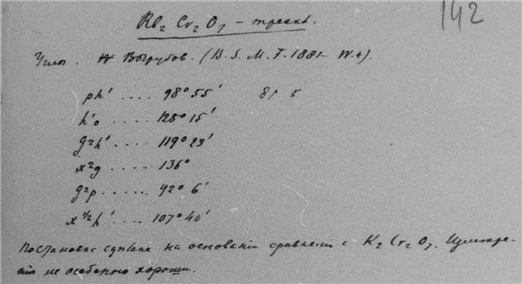 142
Rb₂ Cr₂ O₇ – трескл.
Углы. Вырубов. (B. S. M. F. 1881 IV.).
ph' .... 98° 55' 81 5
h'o .... 125° 15'
g²h' .... 119° 23'
x²g .... 136°
g²p ..... 92° 6'
x ½ h' .... 107° 40'
Постановка сделана на основанiи сравненiя с K₂ Cr₂ O₇. Измѣре-
нiя не особенно хороши.